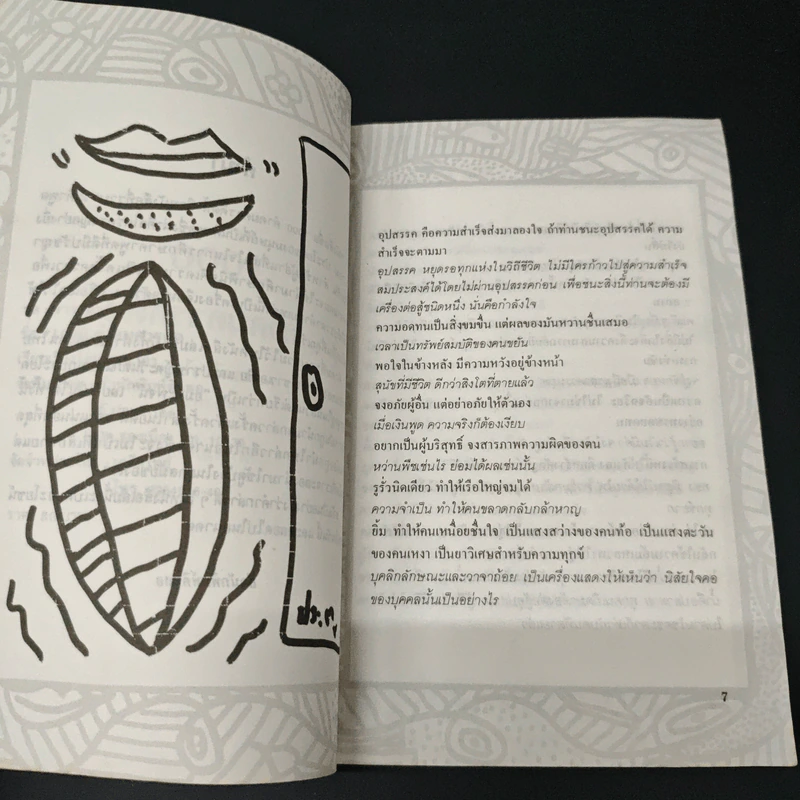 ประตู
อุปสรรค คือความสำเร็จส่งมาลองใจ ถ้าท่านชนะอุปสรรคได้ ความ
สำเร็จจะตามมา
อุปสรรค หยุดรอทุกแห่งในวิถีชีวิต ไม่มีใครก้าวไปสู่ความสำเร็จ
สมประสงค์ได้โดยไม่ผ่านอุปสรรคก่อน เพื่อชนะสิ่งนี้ท่านจะต้องมี
เครื่องต่อสู้ชนิดหนึ่ง นั่นคือกำลังใจ
ความอดทนเป็นสิ่งขมขื่น แต่ผลของมันหวานชื่นเสมอ
เวลาเป็นทรัพย์สมบัติของคนขยัน
พอใจในข้างหลัง มีความหวังอยู่ข้างหน้า
สุนัขที่มีชีวิต ดีกว่าสิงโตที่ตายแล้ว
จงอภัยผู้อื่น แต่อย่าอภัยให้ตัวเอง
เมื่อเงินพูด ความจริงก็ต้องเงียบ
อยากเป็นผู้บริสุทธิ์ จงสารภาพความผิดของตน
หว่านพืชเช่นไร ย่อมได้ผลเช่นนั้น
รูรั่วนิดเดียว ทำให้เรือใหญ่จมได้
ความจำเป็น ทำให้คนขลาดกลับกล้าหาญ
ยิ้ม ทำให้คนเหนื่อยชื่นใจ เป็นแสงสว่างของคนท้อ เป็นแสงตะวัน
ของคนเหงา เป็นยาวิเศษสำหรับความทุกข์
บุคลิกลักษณะและวาจาถ้อย เป็นเครื่องแสดงให้เห็นว่า นิสัยใจคอ
ของบุคคลนั้นเป็นอย่างไร
7